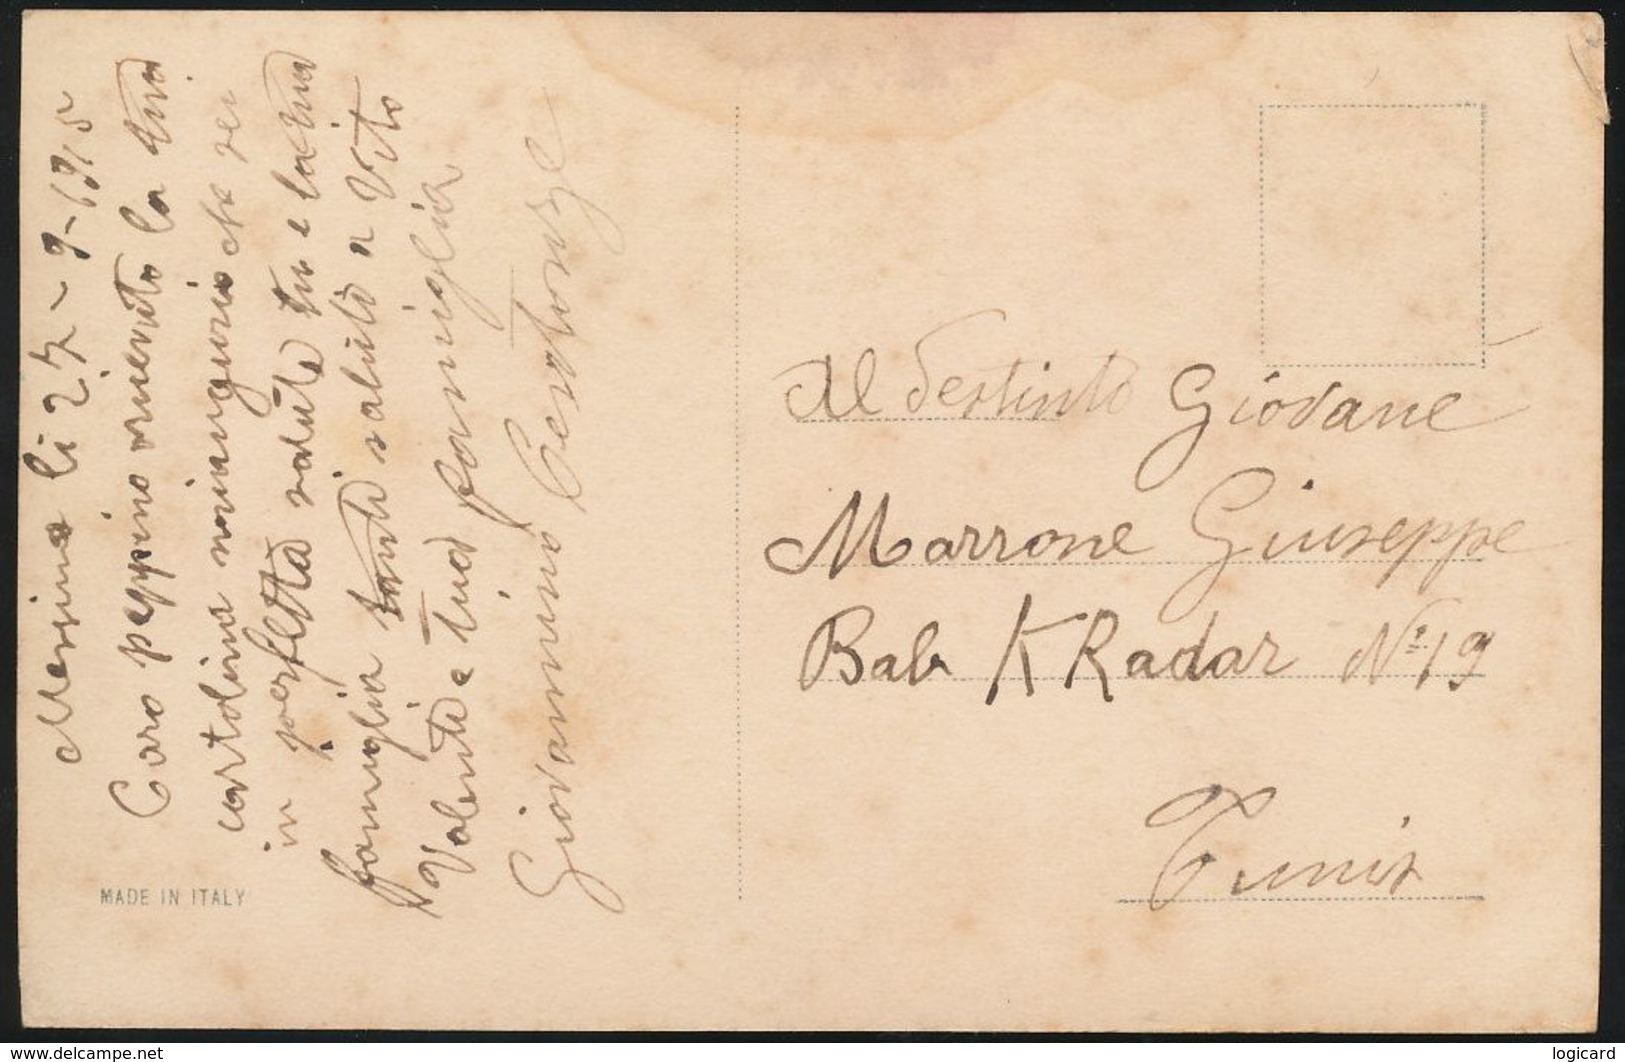 Messina li 25-9-1915
Caro peppino ricevuto la tua
cartolina noi auguriō che sei
in perfetta salute tu e la tua
famiglia tanti saluti a Vito
Valenti e tua famiglia
Giovannino
MADE IN ITALY
Al destinto Giovane
Marrone Giuseppe
Bab K Radar No 19
Tunis
www.delcampe.net
logicard